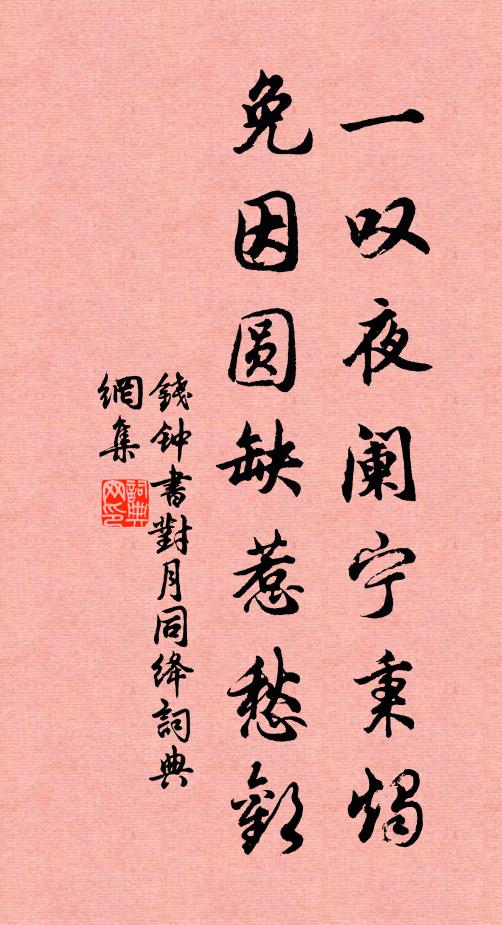 一叹夜阑宁秉烛
免因圆缺惹愁歡
錢钟書對月同绛詞典
網集
詞典网印